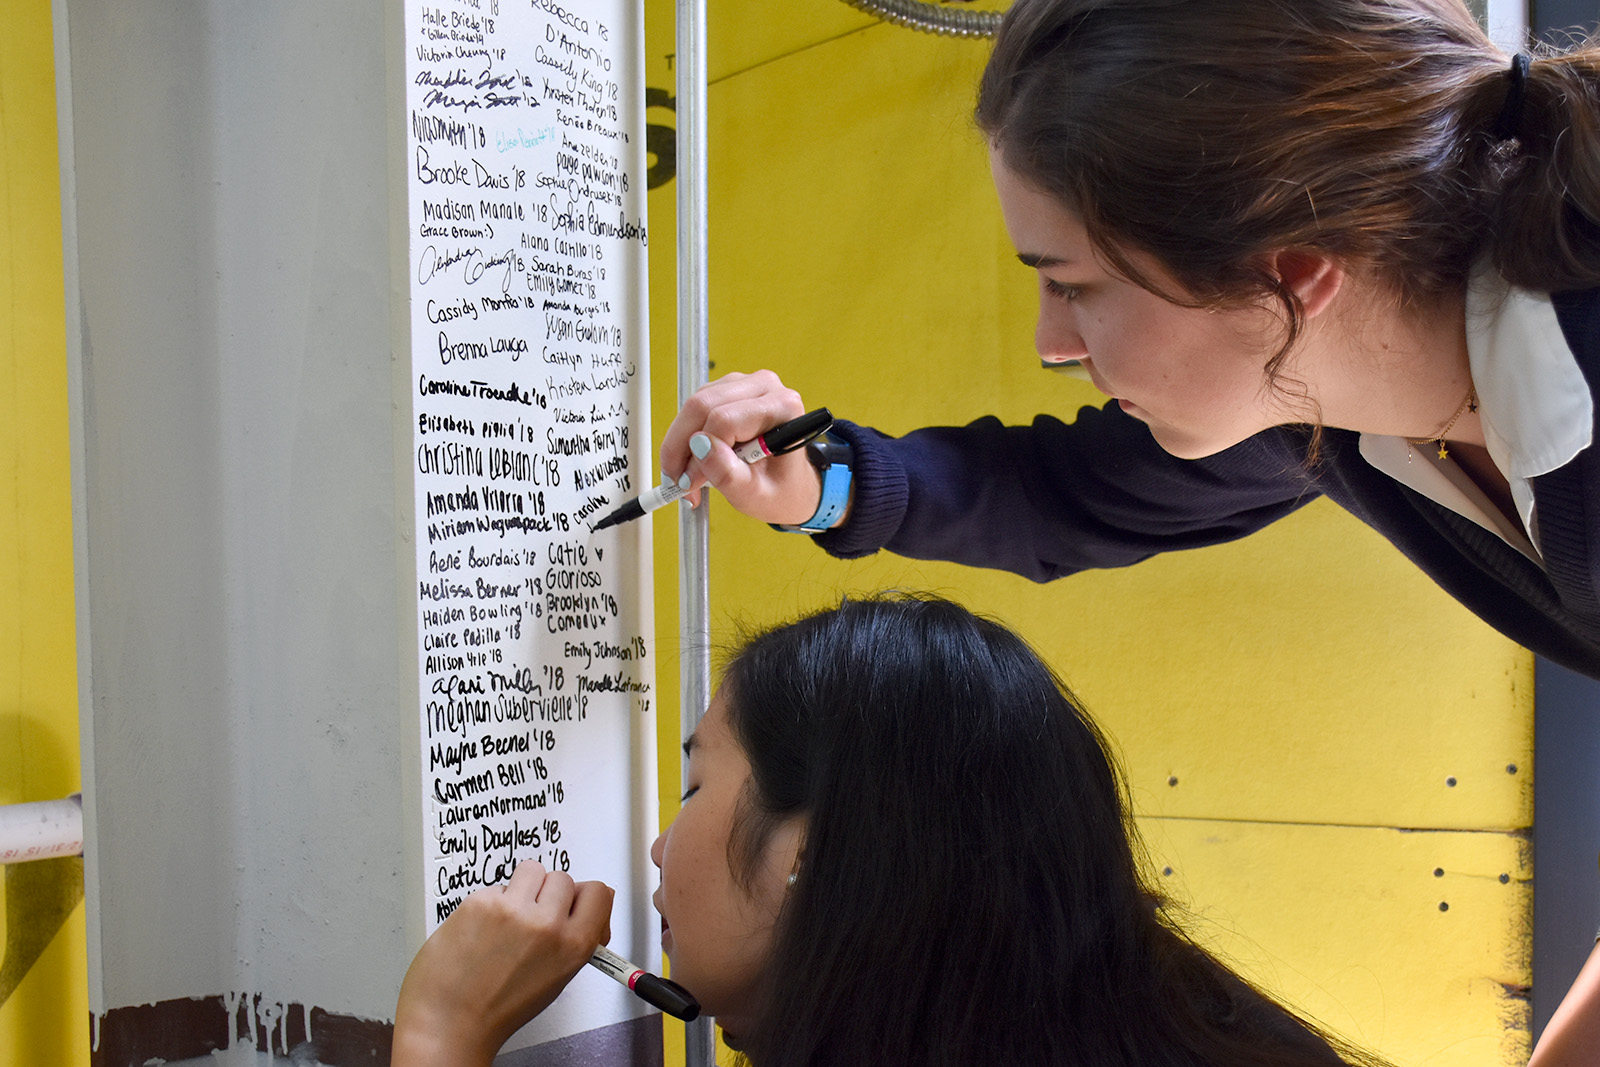 Halle Briede '18
Victoria Cheung '18
'12
Brooke Davis '18
Madison Manale '18
Grace Brown :)
'18
Cassidy '18
Brenna Lauga
Caroline Troendle '18
Elisabeth Piglia '18
Christina LeBlanc '18
Amanda '18
Miriam Waguespack '18
René Bourdais '18
Melissa Berner '18
Haiden Bowling '18
Claire Padilla '18
Allison '18
'18
Meghan Subervielle '18
Mayne Becnel '18
Carmen Bell '18
Lauren Normand '18
Emily Douglass '18
Catie '18
Abby
Rebecca '18
D'Antonio
Cassidy King '18
Kristen '18
Renée Breaux '18
Anne zelden '18
paige pawson '18
Sophie '18
Sophia Edmundson '18
Alana Castillo '18
Sarah Buras '18
Emily Gomez '18
Amanda '18
Susan '18
Caitlyn Huff
Kristen
Victoria Liu ^_^
Samantha Forry '18
Alex
'18
Caroline
Catie ♥
Glorioso
Brooklyn '18
Comeaux
Emily Johnson '18
'18
12/31/15 13